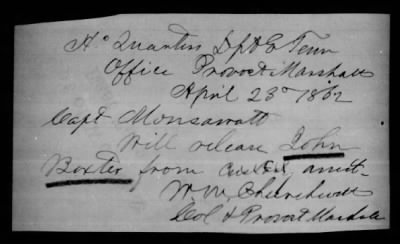 Hd Quarters Dpt E Tenn
Office Provost Marshall
April 23d 1862
Capt Monsarratt
Will release John
Boxter from arrest
W. M. Churchwell
Col & Provost Marshall